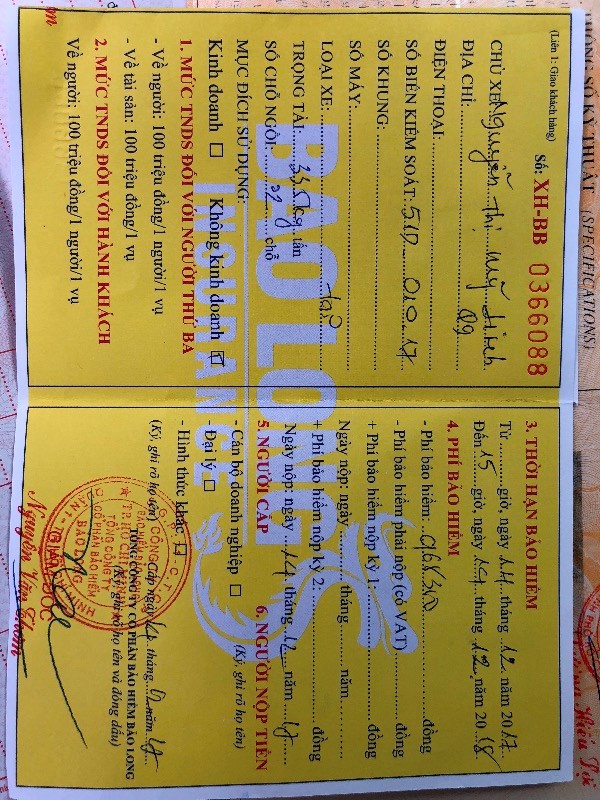 (Liên 1: Giao khách hàng)
Số: XH-BB 0366088
CHỦ XE Nguyễn Thị Mỹ Hinh
ĐỊA CHỈ: Q9
ĐIỆN THOẠI:
SỐ BIỂN KIỂM SOÁT: 51D 010.17
SỐ KHUNG:
SỐ MÁY:
LOẠI XE: tải
TRỌNG TẢI: tấn
SỐ CHỖ NGỒI: chỗ
MỤC ĐÍCH SỬ DỤNG:
Kinh doanh Không kinh doanh
1. MỨC TNDS ĐỐI VỚI NGƯỜI THỨ BA
- Về người: 100 triệu đồng/1 người/1 vụ
- Về tài sản: 100 triệu đồng/1 vụ
2. MỨC TNDS ĐỐI VỚI HÀNH KHÁCH
Về người: 100 triệu đồng/1 người/1 vụ
BAO LONG
INSURAN
3. THỜI HẠN BẢO HIỂM
Từ giờ, ngày 14 tháng 12 năm 2017
Đến 15 giờ, ngày 14 tháng 12 năm 2018
4. PHÍ BẢO HIỂM
- Phí bảo hiểm: đồng
- Phí bảo hiểm phải nộp (có VAT) đồng
+ Phí bảo hiểm nộp kỳ 1: đồng
Ngày nộp: ngày tháng năm
+ Phí bảo hiểm nộp kỳ 2: đồng
Ngày nộp: ngày 14 tháng 12 năm 17
5. NGƯỜI CẤP 6. NGƯỜI NỘP TIỀN
- Cán bộ doanh nghiệp (Ký, ghi rõ họ tên)
- Đại lý
- Hình thức khác
(Ký, ghi rõ họ tên) Cấp ngày 14 tháng 12 năm 17
TỔNG CÔNG TY CỔ PHẦN BẢO HIỂM BẢO LONG
(Ký, ghi rõ họ tên và đóng dấu)
TỔNG CÔNG TY
CỔ PHẦN BẢO HIỂM
BẢO LONG
GIÁM ĐỐC
THÔNG SỐ KỸ THUẬT (SPECIFICATIONS)